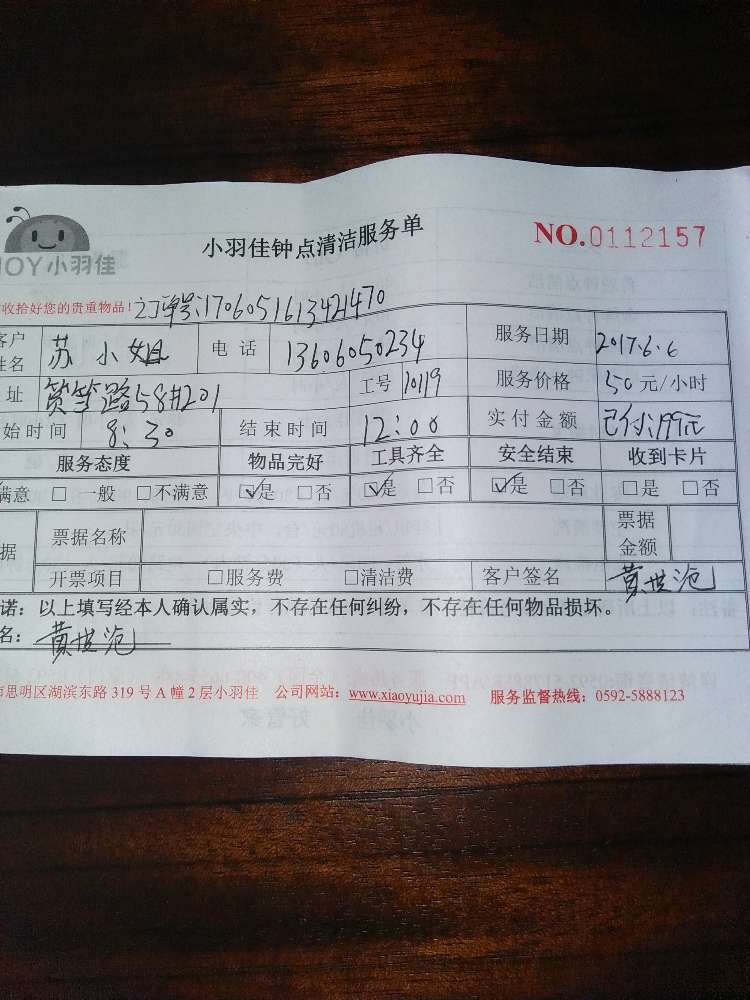 小羽佳钟点清洁服务单 NO.0112157
JOY小羽佳
收拾好您的贵重物品! 订单号:1706051613421470
客户姓名 苏小姐 电话 13606050234 服务日期 2017.6.6
址 筼筜路58#201 工号 10119 服务价格 50元/小时
始时间 8:30 结束时间 12:00 实付金额 已付:199元
服务态度 物品完好 工具齐全 安全结束 收到卡片
满意 □一般 □不满意 ☑是 □否 ☑是 □否 ☑是 □否 □是 □否
据 票据名称 票据金额
开票项目 □服务费 □清洁费 客户签名 黄世沧
诺:以上填写经本人确认属实,不存在任何纠纷,不存在任何物品损坏。
名: 黄世沧
市思明区湖滨东路 319 号 A 幢 2 层小羽佳 公司网站:www.xiaoyujia.com 服务监督热线:0592-5888123